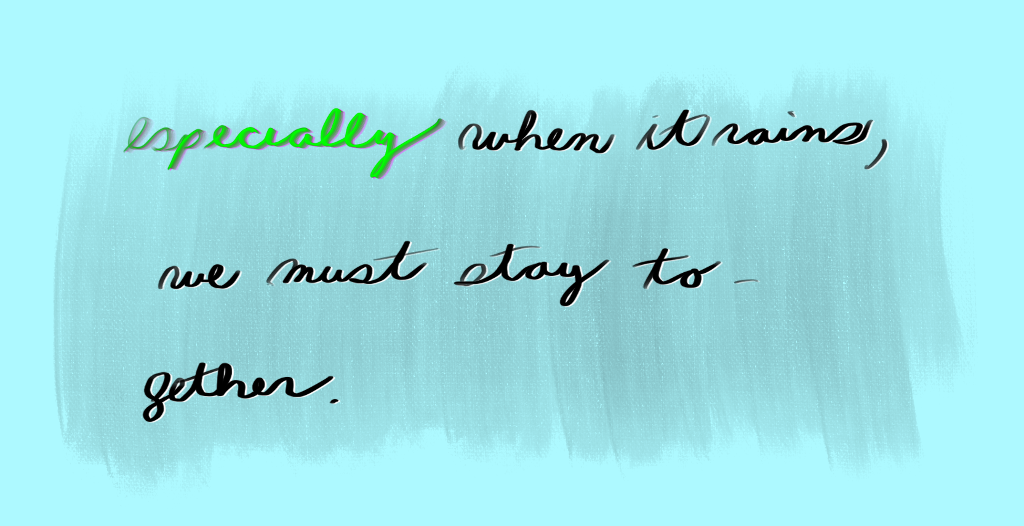 especially when it rains,
we must stay to-
gether.